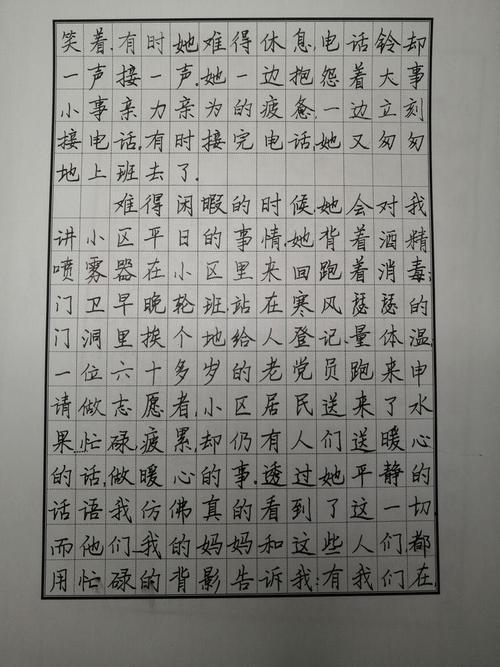 笑着.有时她难得休息,电话铃却
一声接一声.她一边抱怨着大事
小事亲力亲为的疲惫,一边立刻
接电话,有时接完电话,她又匆匆
地上班去了.
难得闲暇的时候,她会对我
讲小区平日的事情,她背着酒精
喷雾器在小区里来回跑着消毒;
门卫早晚轮班站在寒风瑟瑟的
门洞里挨个地给人登记.量体温;
一位六十多岁的老党员跑来申
请做志愿者,小区居民送来了水
果.忙碌.疲累,却仍有人们送暖心
的话,做暖心的事.透过她平静的
话语我仿佛真的看到了这一切.
而他们,我的妈妈和这些人们都
用忙碌的背影告诉我:有我们在,